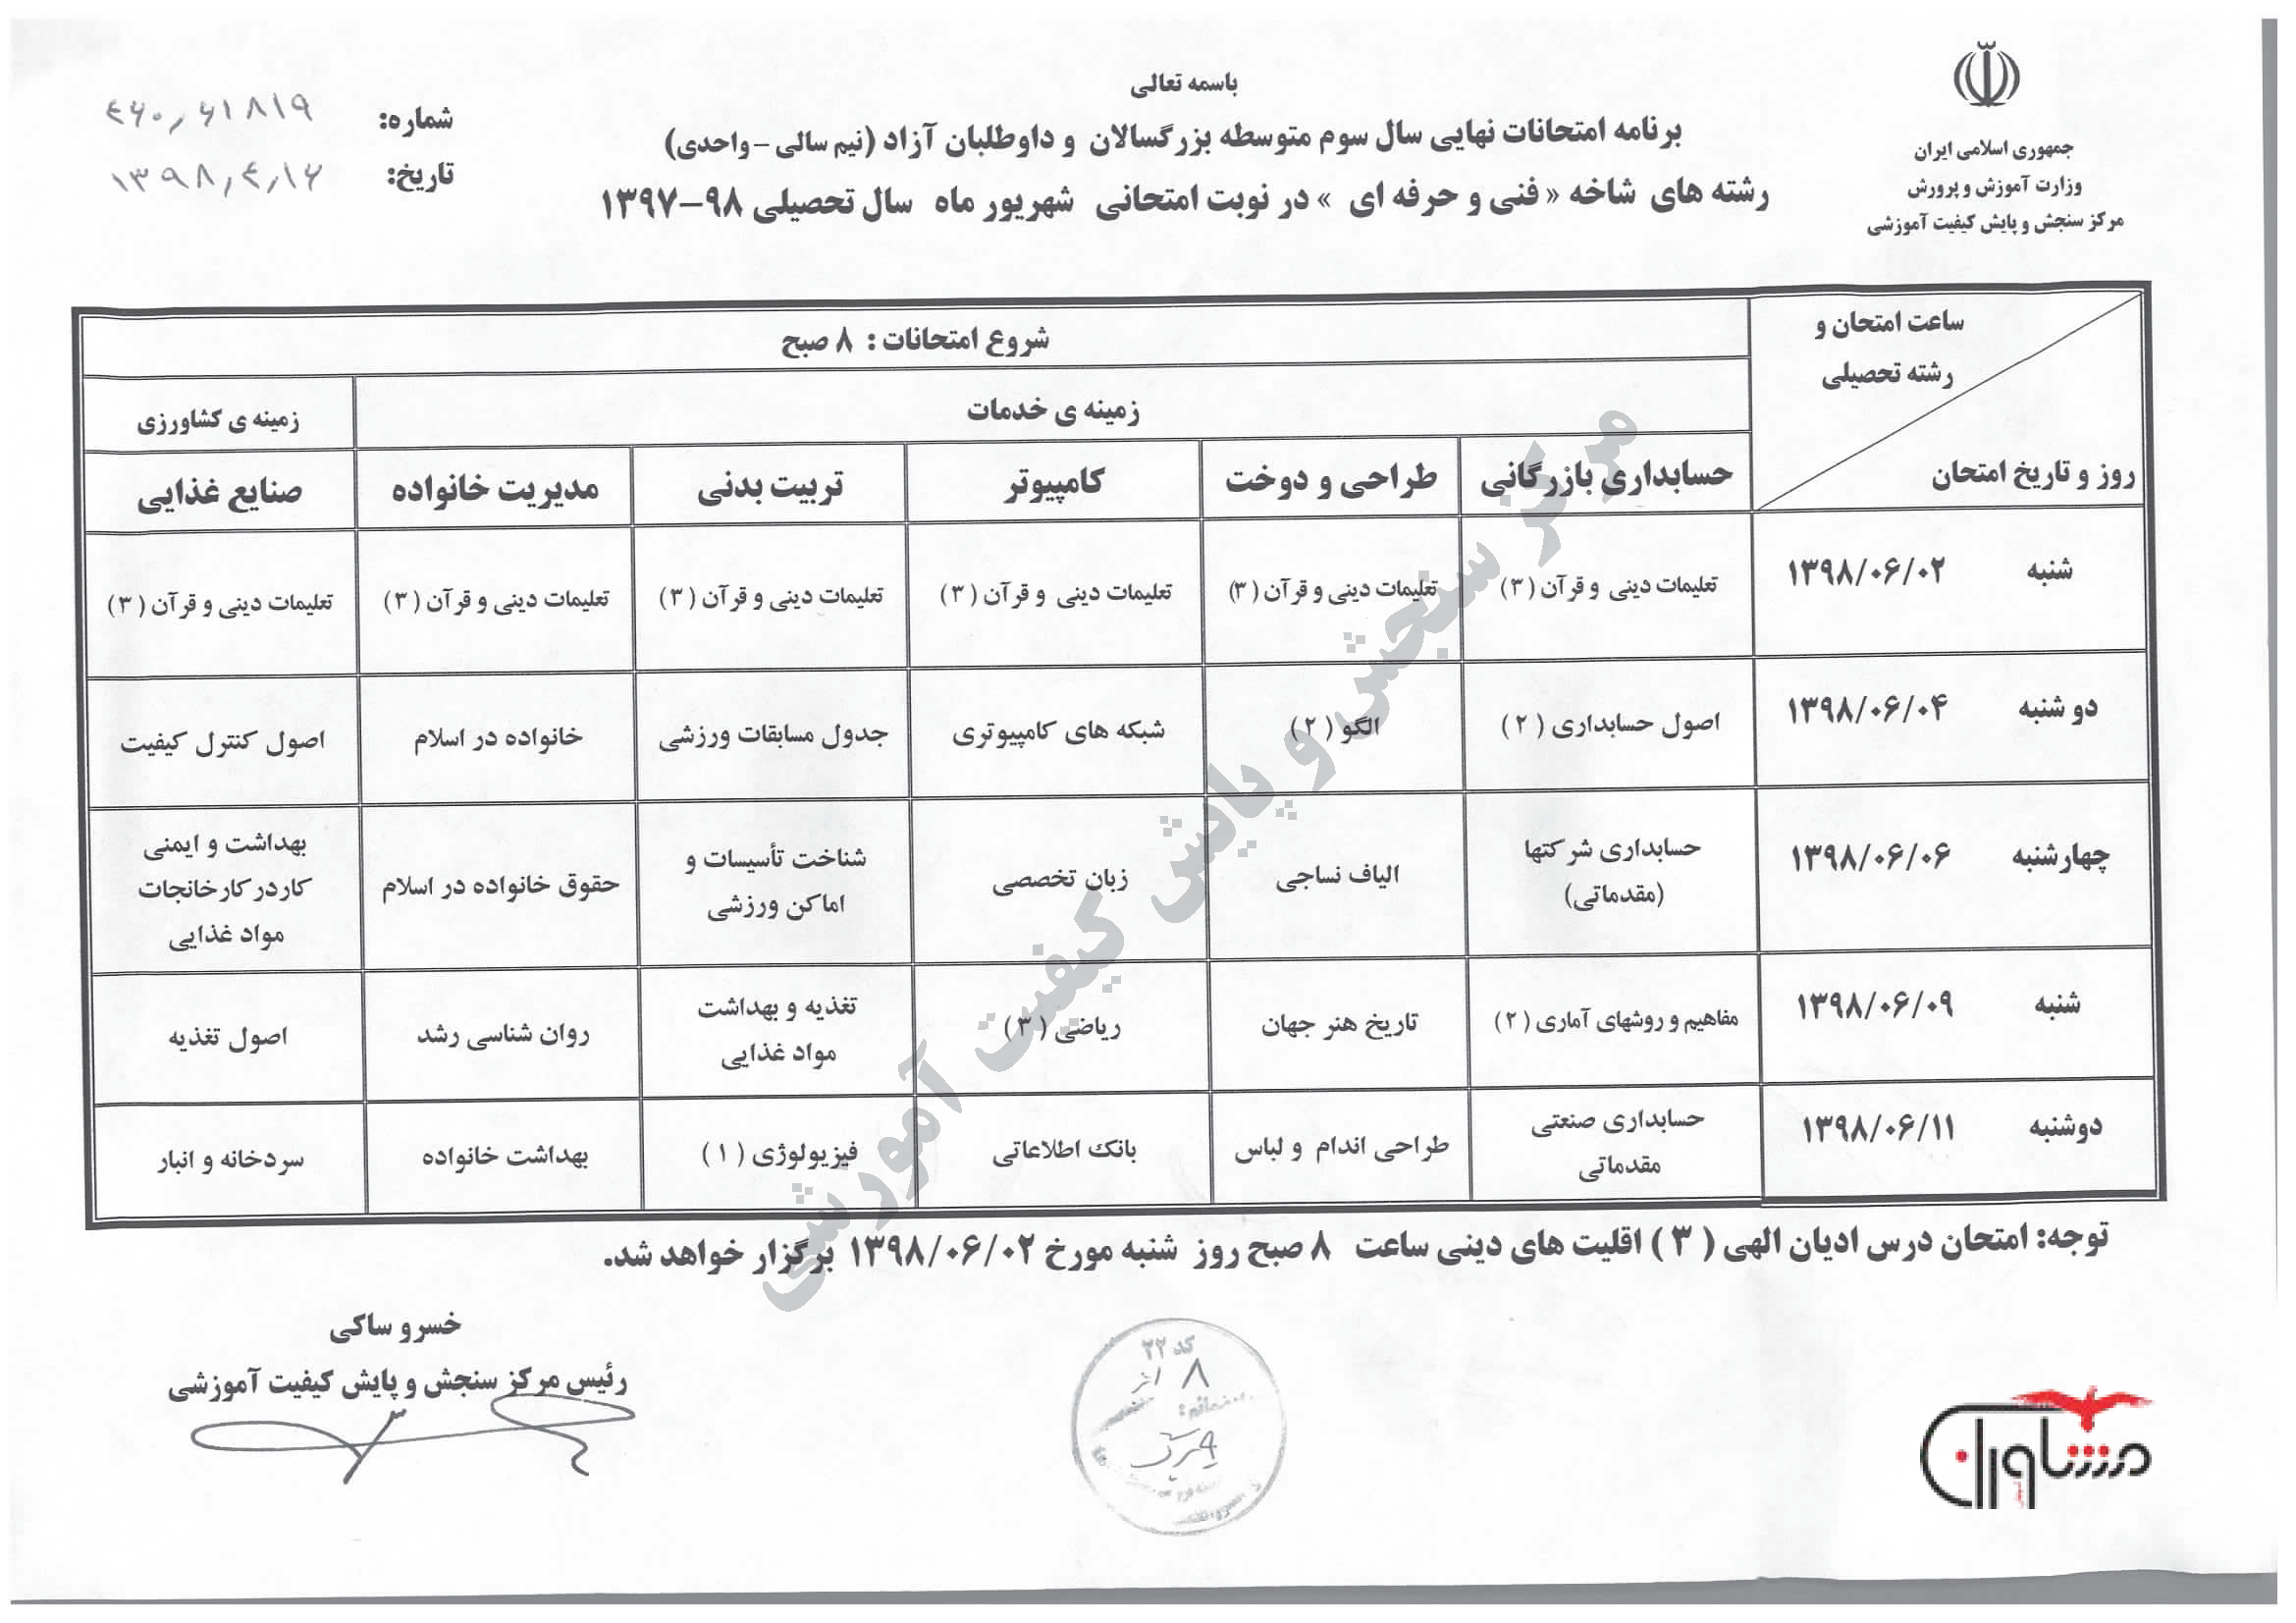 باسمه تعالی
برنامه امتحانات نهایی سال سوم متوسطه بزرگسالان و داوطلبان آزاد (نیم سالی – واحدی)
رشته های شاخه « فنی و حرفه ای » در نوبت امتحانی شهریور ماه سال تحصیلی ۹۸–۱۳۹۷
جمهوری اسلامی ایران
وزارت آموزش و پرورش
مرکز سنجش و پایش کیفیت آموزشی
شماره:
تاریخ: ۱۳۹۸٫۴٫۱۶
ساعت امتحان و
رشته تحصیلی
روز و تاریخ امتحان
شروع امتحانات : ۸ صبح
زمینه ی خدمات
زمینه ی کشاورزی
حسابداری بازرگانی
طراحی و دوخت
کامپیوتر
تربیت بدنی
مدیریت خانواده
صنایع غذایی
شنبه ۱۳۹۸/۰۶/۰۲
تعلیمات دینی و قرآن (۳)
تعلیمات دینی و قرآن (۳)
تعلیمات دینی و قرآن (۳)
تعلیمات دینی و قرآن (۳)
تعلیمات دینی و قرآن (۳)
تعلیمات دینی و قرآن (۳)
دو شنبه ۱۳۹۸/۰۶/۰۴
اصول حسابداری (۲)
الگو (۲)
شبکه های کامپیوتری
جدول مسابقات ورزشی
خانواده در اسلام
اصول کنترل کیفیت
چهارشنبه ۱۳۹۸/۰۶/۰۶
حسابداری شرکتها
(مقدماتی)
الیاف نساجی
زبان تخصصی
شناخت تأسیسات و
اماکن ورزشی
حقوق خانواده در اسلام
بهداشت و ایمنی
کاردرکارخانجات
مواد غذایی
شنبه ۱۳۹۸/۰۶/۰۹
مفاهیم و روشهای آماری (۲)
تاریخ هنر جهان
ریاضی (۳)
تغذیه و بهداشت
مواد غذایی
روان شناسی رشد
اصول تغذیه
دوشنبه ۱۳۹۸/۰۶/۱۱
حسابداری صنعتی
مقدماتی
طراحی اندام و لباس
بانک اطلاعاتی
فیزیولوژی (۱)
بهداشت خانواده
سردخانه و انبار
توجه: امتحان درس ادیان الهی (۳) اقلیت های دینی ساعت ۸ صبح روز شنبه مورخ ۱۳۹۸/۰۶/۰۲ برگزار خواهد شد.
خسرو ساکی
رئیس مرکز سنجش و پایش کیفیت آموزشی
مرکز سنجش و پایش کیفیت آموزشی
کد ۲۲
مشاوران